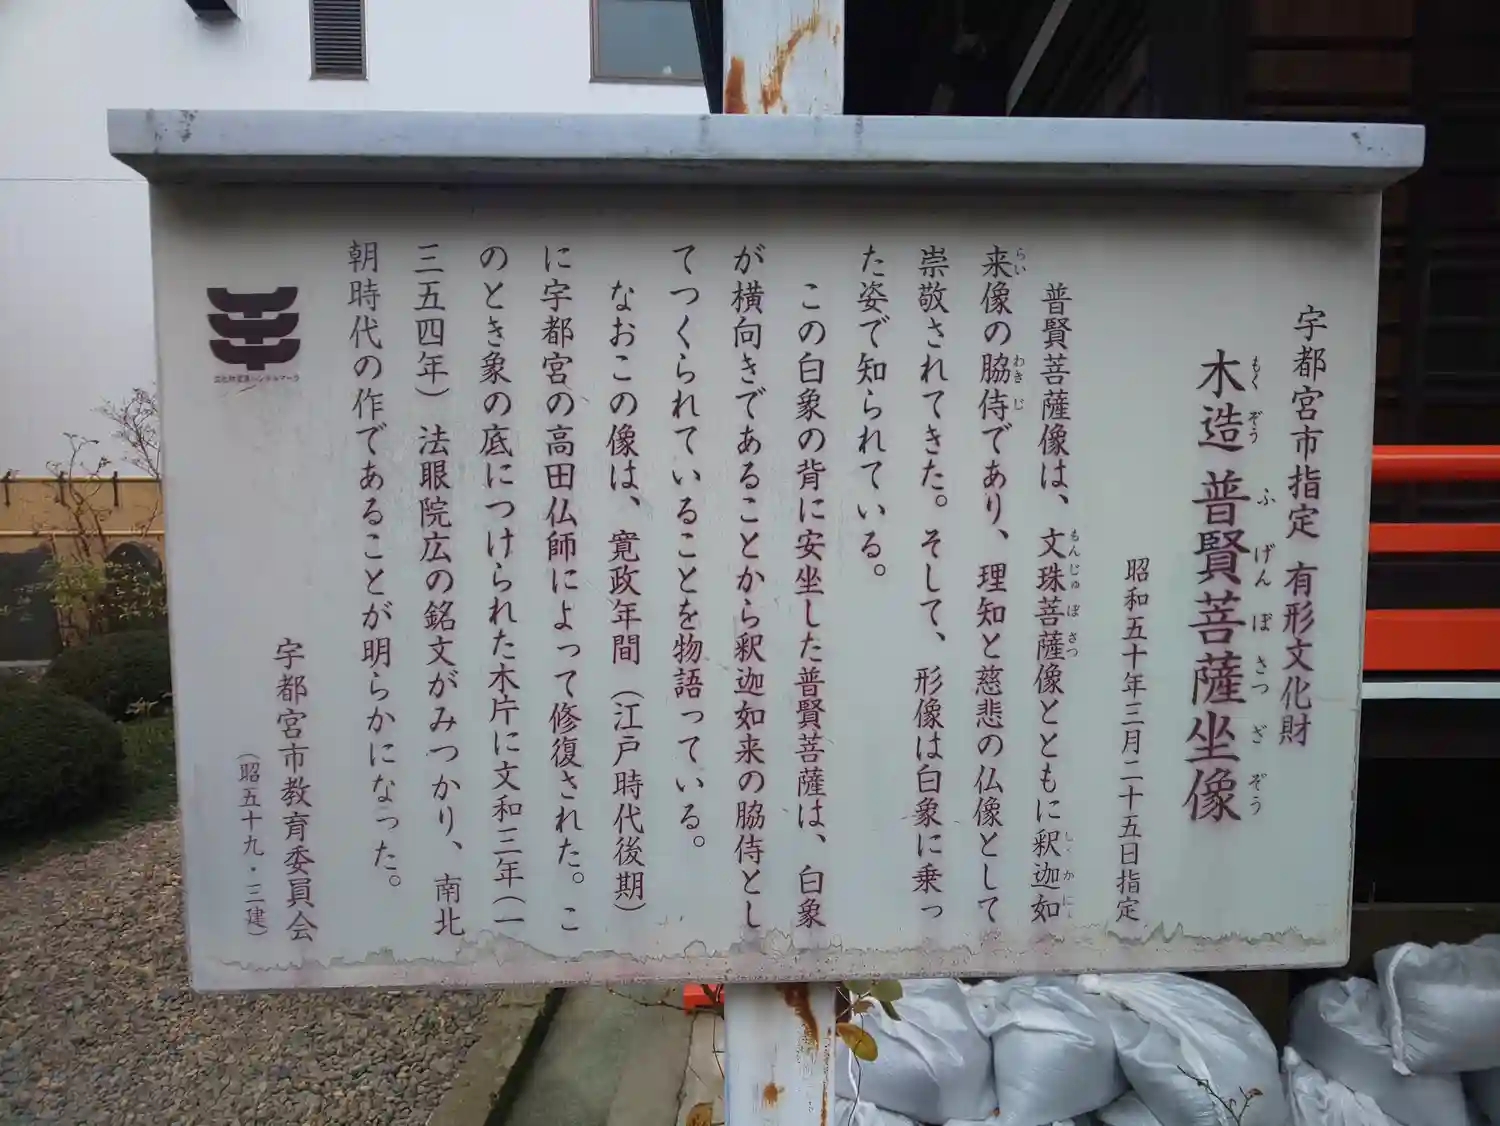 宇都宮市指定 有形文化財
木造 普賢菩薩坐像
もく ぞう ふ げん ぼ さつ ざ ぞう
昭和五十年三月二十五日指定
普賢菩薩像は、文珠菩薩像とともに釈迦如
もんじゅ ぼ さつ しゃ か にょ
来像の脇侍であり、理知と慈悲の仏像として
らい わき じ
崇敬されてきた。そして、形像は白象に乗っ
た姿で知られている。
この白象の背に安坐した普賢菩薩は、白象
が横向きであることから釈迦如来の脇侍とし
てつくられていることを物語っている。
なおこの像は、寛政年間（江戸時代後期）
に宇都宮の高田仏師によって修復された。こ
のとき象の底につけられた木片に文和三年（一
三五四年）法眼院広の銘文がみつかり、南北
朝時代の作であることが明らかになった。
宇都宮市教育委員会
（昭五十九・三建）